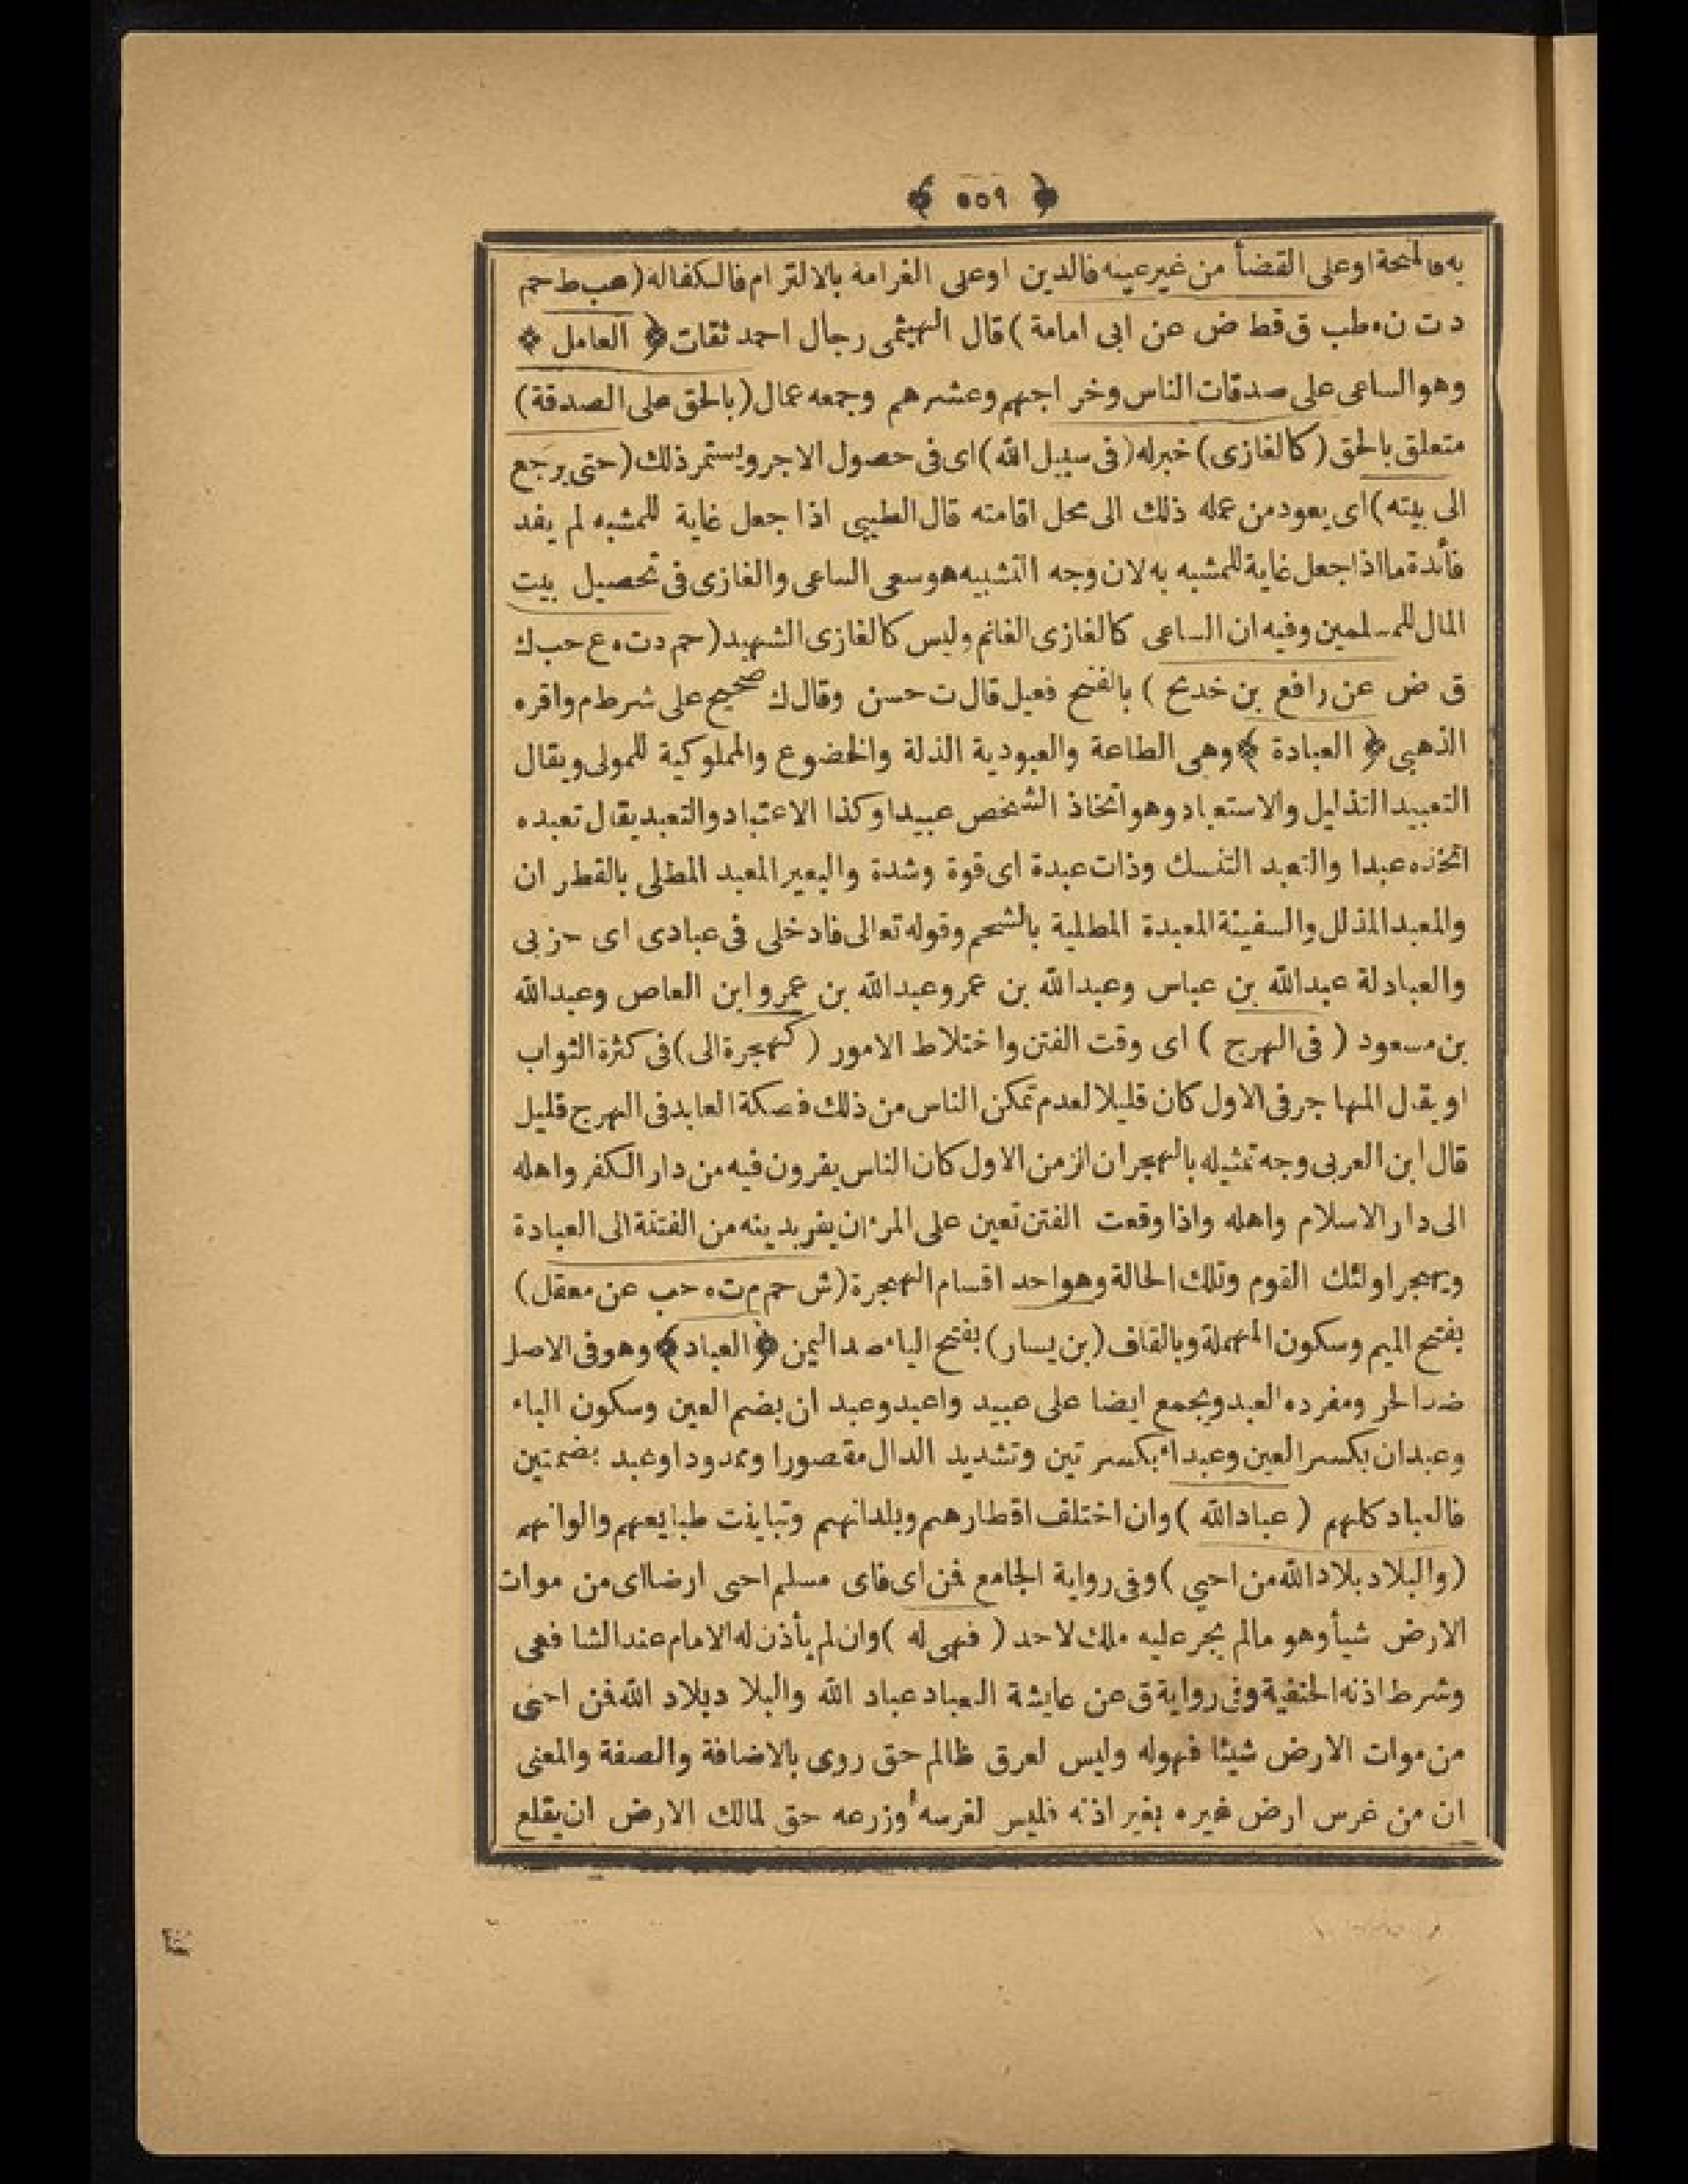 ﴿ ٥٥٩ ﴾
به فالمنحة او على القضأ من غير عينه فالدين او على الغرامة بالالتزام فالكفاله (عب ط حم
د ت ن ه طب ق قط ض عن ابى امامة) قال الهيثمى رجال احمد ثقات ﴿ العامل ﴾
وهو الساعى على صدقات الناس وخراجهم وعشرهم وجمعه عمال (بالحق على الصدقة)
متعلق بالحق (كالغازى) خبر له (فى سبيل الله) اى فى حصول الاجر ويستمر ذلك (حتى يرجع
الى بيته) اى يعود من عمله ذلك الى محل اقامته قال الطيبى اذا جعل غاية للمشبه لم يفد
فأئدة ما اذا جعل غاية للمشبه به لان وجه التشبيه هو سعى الساعى والغازى فى تحصيل بيت
المال للمسلمين وفيه ان الساعى كالغازى الغانم وليس كالغازى الشهيد (حم د ت ه ع حب ك
ق ض عن رافع بن خديج) بالفتح فعيل قال ت حسن وقال ك صحيح على شرط م واقره
الذهبى ﴿ العبادة ﴾ وهى الطاعة والعبودية الذلة والخضوع والمملوكية للمولى ويقال
التعبيد التذليل والاستعباد وهو اتخاذ الشخص عبيدا وكذا الاعتباد والتعبد يقال تعبده
اتخذه عبدا والتعبد التنسك وذات عبدة اى قوة وشدة والبعير المعبد المطلى بالقطران
والمعبد المذلل والسفينة المعبدة المطلية بالشحم وقوله تعالى فادخلى فى عبادى اى حزبى
والعبادلة عبدالله بن عباس وعبدالله بن عمر وعبدالله بن عمرو ابن العاص وعبدالله
بن مسعود (فى الهرج) اى وقت الفتن واختلاط الامور (كهجرة الى) فى كثرة الثواب
او يقال المهاجر فى الاول كان قليلا لعدم تمكن الناس من ذلك فهكذا العابد فى الهرج قليل
قال ابن العربى وجه تمثيله بالهجر ان الزمن الاول كان الناس يفرون فيه من دار الكفر واهله
الى دار الاسلام واهله واذا وقعت الفتن تعين على المرء ان يفر بدينه من الفتنة الى العبادة
ويهجر اولئك القوم وتلك الحالة وهو احد اقسام الهجرة (ش حم م ت ه حب عن معقل)
بفتح الميم وسكون المهملة وبالقاف (بن يسار) بفتح الياء ضد اليمن ﴿ العباد ﴾ وهو فى الاصل
ضد الحر ومفرده العبد ويجمع ايضا على عبيد واعبد وعبدان بضم العين وسكون الباء
وعبدان بكسر العين وعبداء بكسرتين وتشديد الدال مقصورا وممدودا وعبد بضمتين
فالعباد كلهم (عباد الله) وان اختلف اقطارهم وبلدانهم وتباينت طبايعهم والوانهم
(والبلاد بلاد الله من احيى) وفى رواية الجامع فمن اى فاى مسلم احيى ارضا اى من موات
الارض شيأ وهو مالم يجر عليه ملك لاحد (فهى له) وان لم يأذن له الامام عند الشافعى
وشرط اذنه الحنفية وفى رواية ق عن عايشة العباد عباد الله والبلاد بلاد الله فمن احيى
من موات الارض شيئا فهوله وليس لعرق ظالم حق روى بالاضافة والصفة والمعنى
ان من غرس ارض غيره بغير اذنه فليس لغرسه أوزرعه حق لمالك الارض ان يقلع